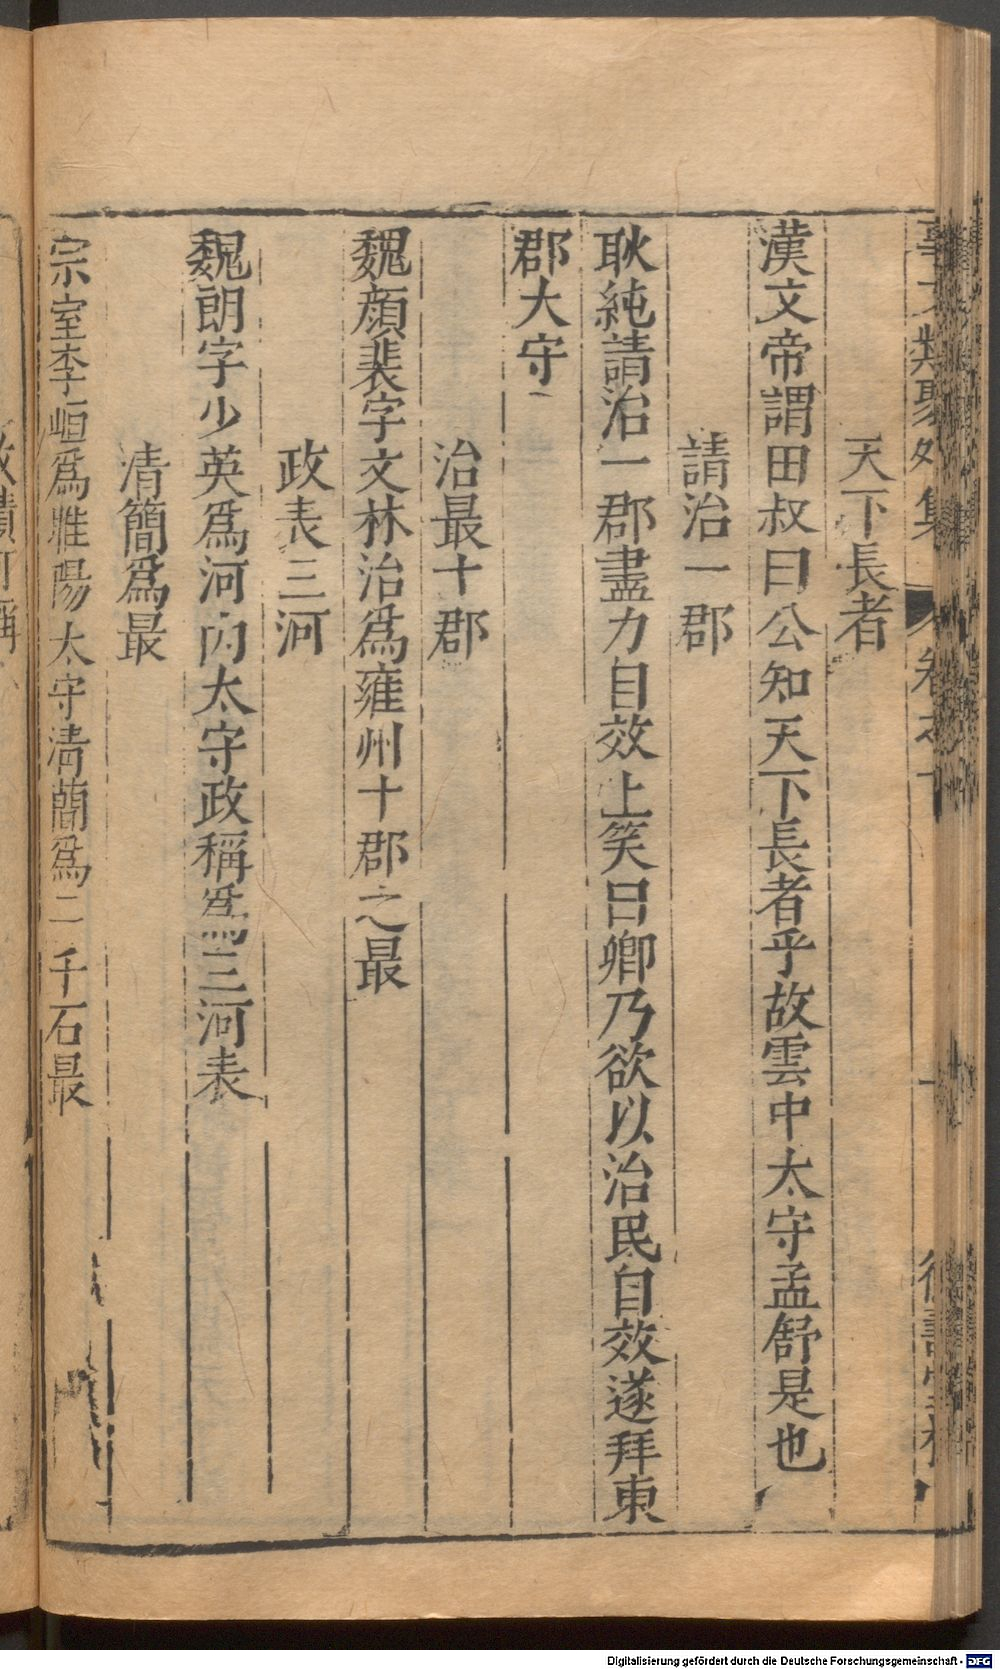 天下長者
漢文帝謂田叔曰公知天下長者乎故雲中太守孟舒是也
請治一郡
耿純請治一郡盡力自效上笑曰卿乃欲以治民自效遂拜東
郡大守
治最十郡
魏顏裴字文林治爲雍州十郡之最
政表三河
魏朗字少英爲河內太守政稱爲三河表
清簡爲最
宗室李峘爲雎陽太守清蕳爲二千石最
Digitalisierung gefördert durch die Deutsche Forschungsgemeinschaft - DFG